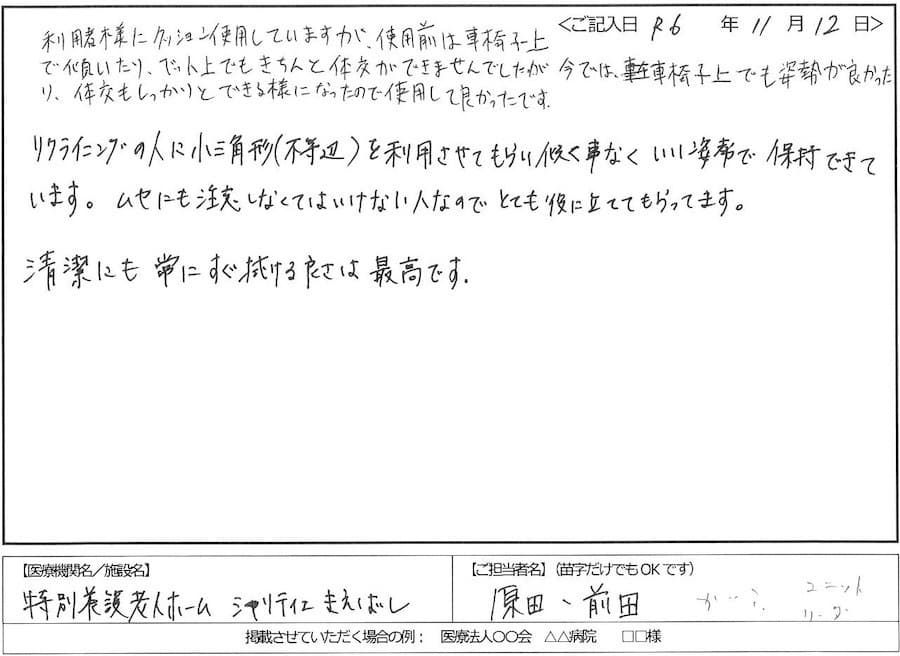 <ご記入日 R6 年 11 月 12 日>
利用者様にクッション使用していますが、使用前は車椅子上
で傾いたり、ベット上でもきちんと体交ができませんでしたが 今では、車椅子上でも姿勢が良かった
り、体交もしっかりとできる様になったので使用して良かったです。
リクライニングの人に小三角形(不等辺)を利用させてもらい傾く事なく いい姿勢で 保持できて
います。ムセにも注意しなくてはいけない人なので とても役に立ててもらってます。
清潔にも 常にすぐ拭ける良さは 最高です.
【医療機関名/施設名】
特別養護老人ホーム シャリティエまえばし
【ご担当者名】(苗字だけでもOKです)
原田、前田
ユニット
リーダー
掲載させていただく場合の例: 医療法人〇〇会 △△病院 □□様